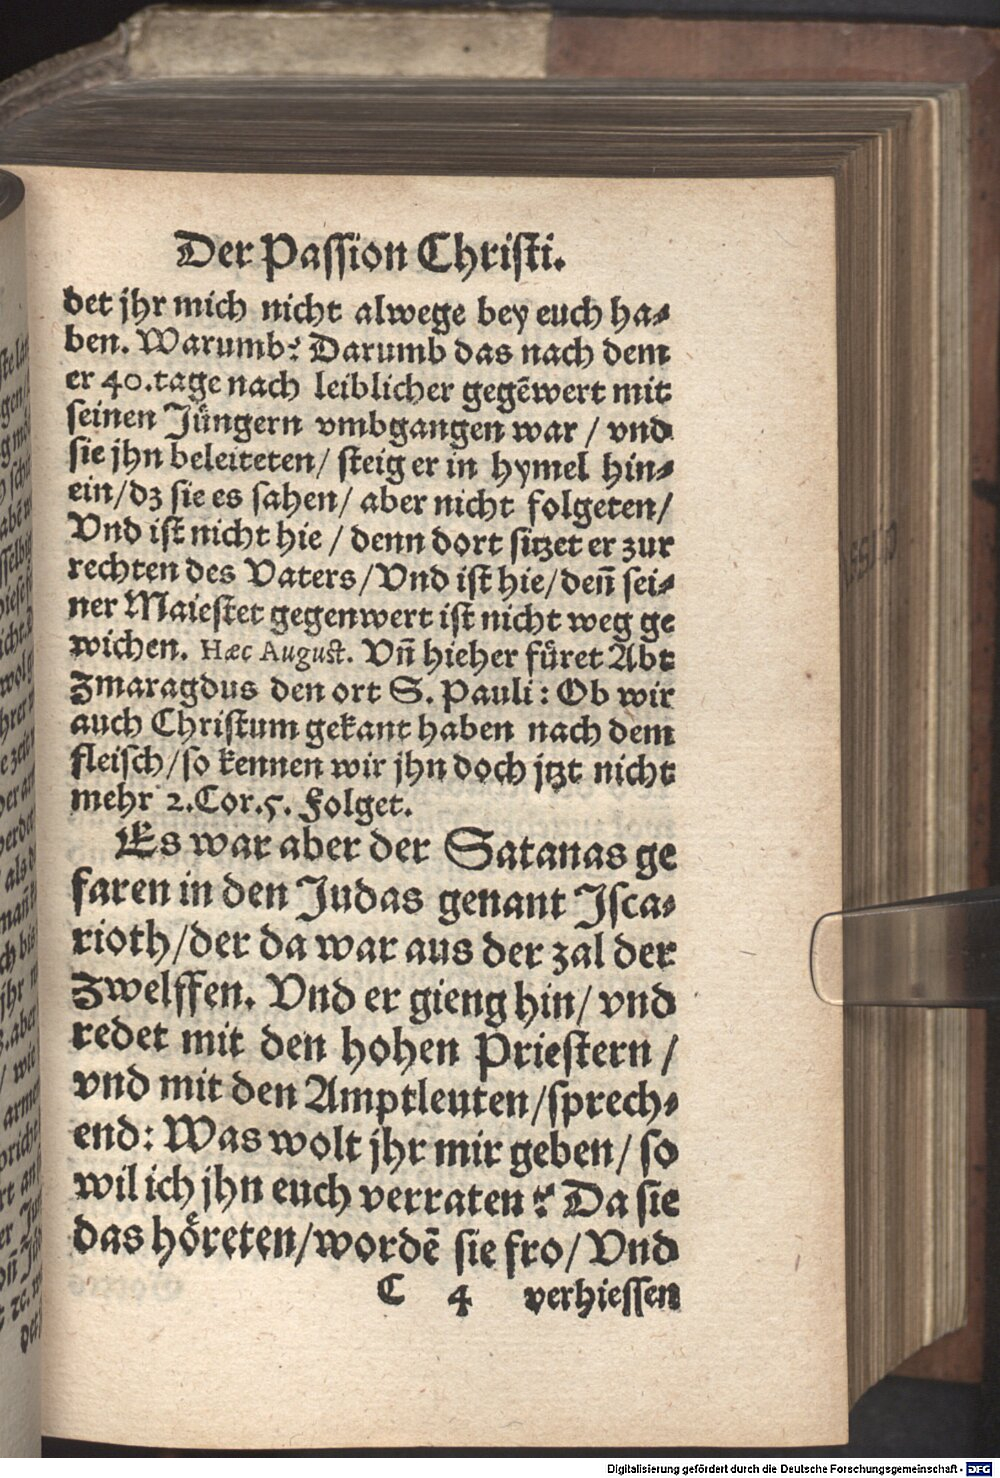 Der Passion Christi.
det jhr mich nicht alwege bey euch ha⸗
ben. Warumb? Darumb das nach dem
er 40.tage nach leiblicher gegẽwert mit
seinen Jüngern vmbgangen war / vnd
sie jhn beleiteten/ steig er in hymel hin⸗
ein/dz sie es sahen/ aber nicht folgeten/
Vnd ist nicht hie / denn dort sitzet er zur
rechten des Vaters/Vnd ist hie/deñ sei⸗
ner Maiestet gegenwert ist nicht weg ge
wichen. Hæc August. Vñ hieher füret Abt
Zmaragdus den ort S. Pauli: Ob wir
auch Christum gekant haben nach dem
fleisch/so kennen wir jhn doch jtzt nicht
mehr 2.Cor.5. Folget.
Es war aber der Satanas ge
faren in den Judas genant Jsca⸗
rioth/der da war aus der zal der
Zwelffen. Vnd er gieng hin/ vnd
redet mit den hohen Priestern /
vnd mit den Amptleuten/sprech⸗
end: Was wolt jhr mir geben/ so
wil ich jhn euch verraten? Da sie
das höreten/wordẽ sie fro/ Vnd
C 4 verhiessen
Digitalisierung gefördert durch die Deutsche Forschungsgemeinschaft - DFG